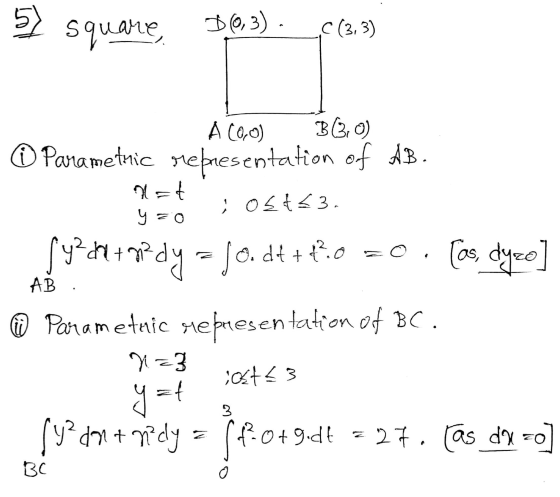 5) square,
D(0,3) . C(3,3)
A(0,0) B(3,0)
(i) Parametric representation of AB.
x = t
y = 0 ; 0 ≤ t ≤ 3.
∫_AB y² dx + x² dy = ∫ 0. dt + t².0 = 0 . [as, dy=0]
(ii) Parametric representation of BC.
x = 3
y = t ; 0 ≤ t ≤ 3
∫_BC y² dx + x² dy = ∫_0^3 t².0 + 9.dt = 27. [as dx = 0]